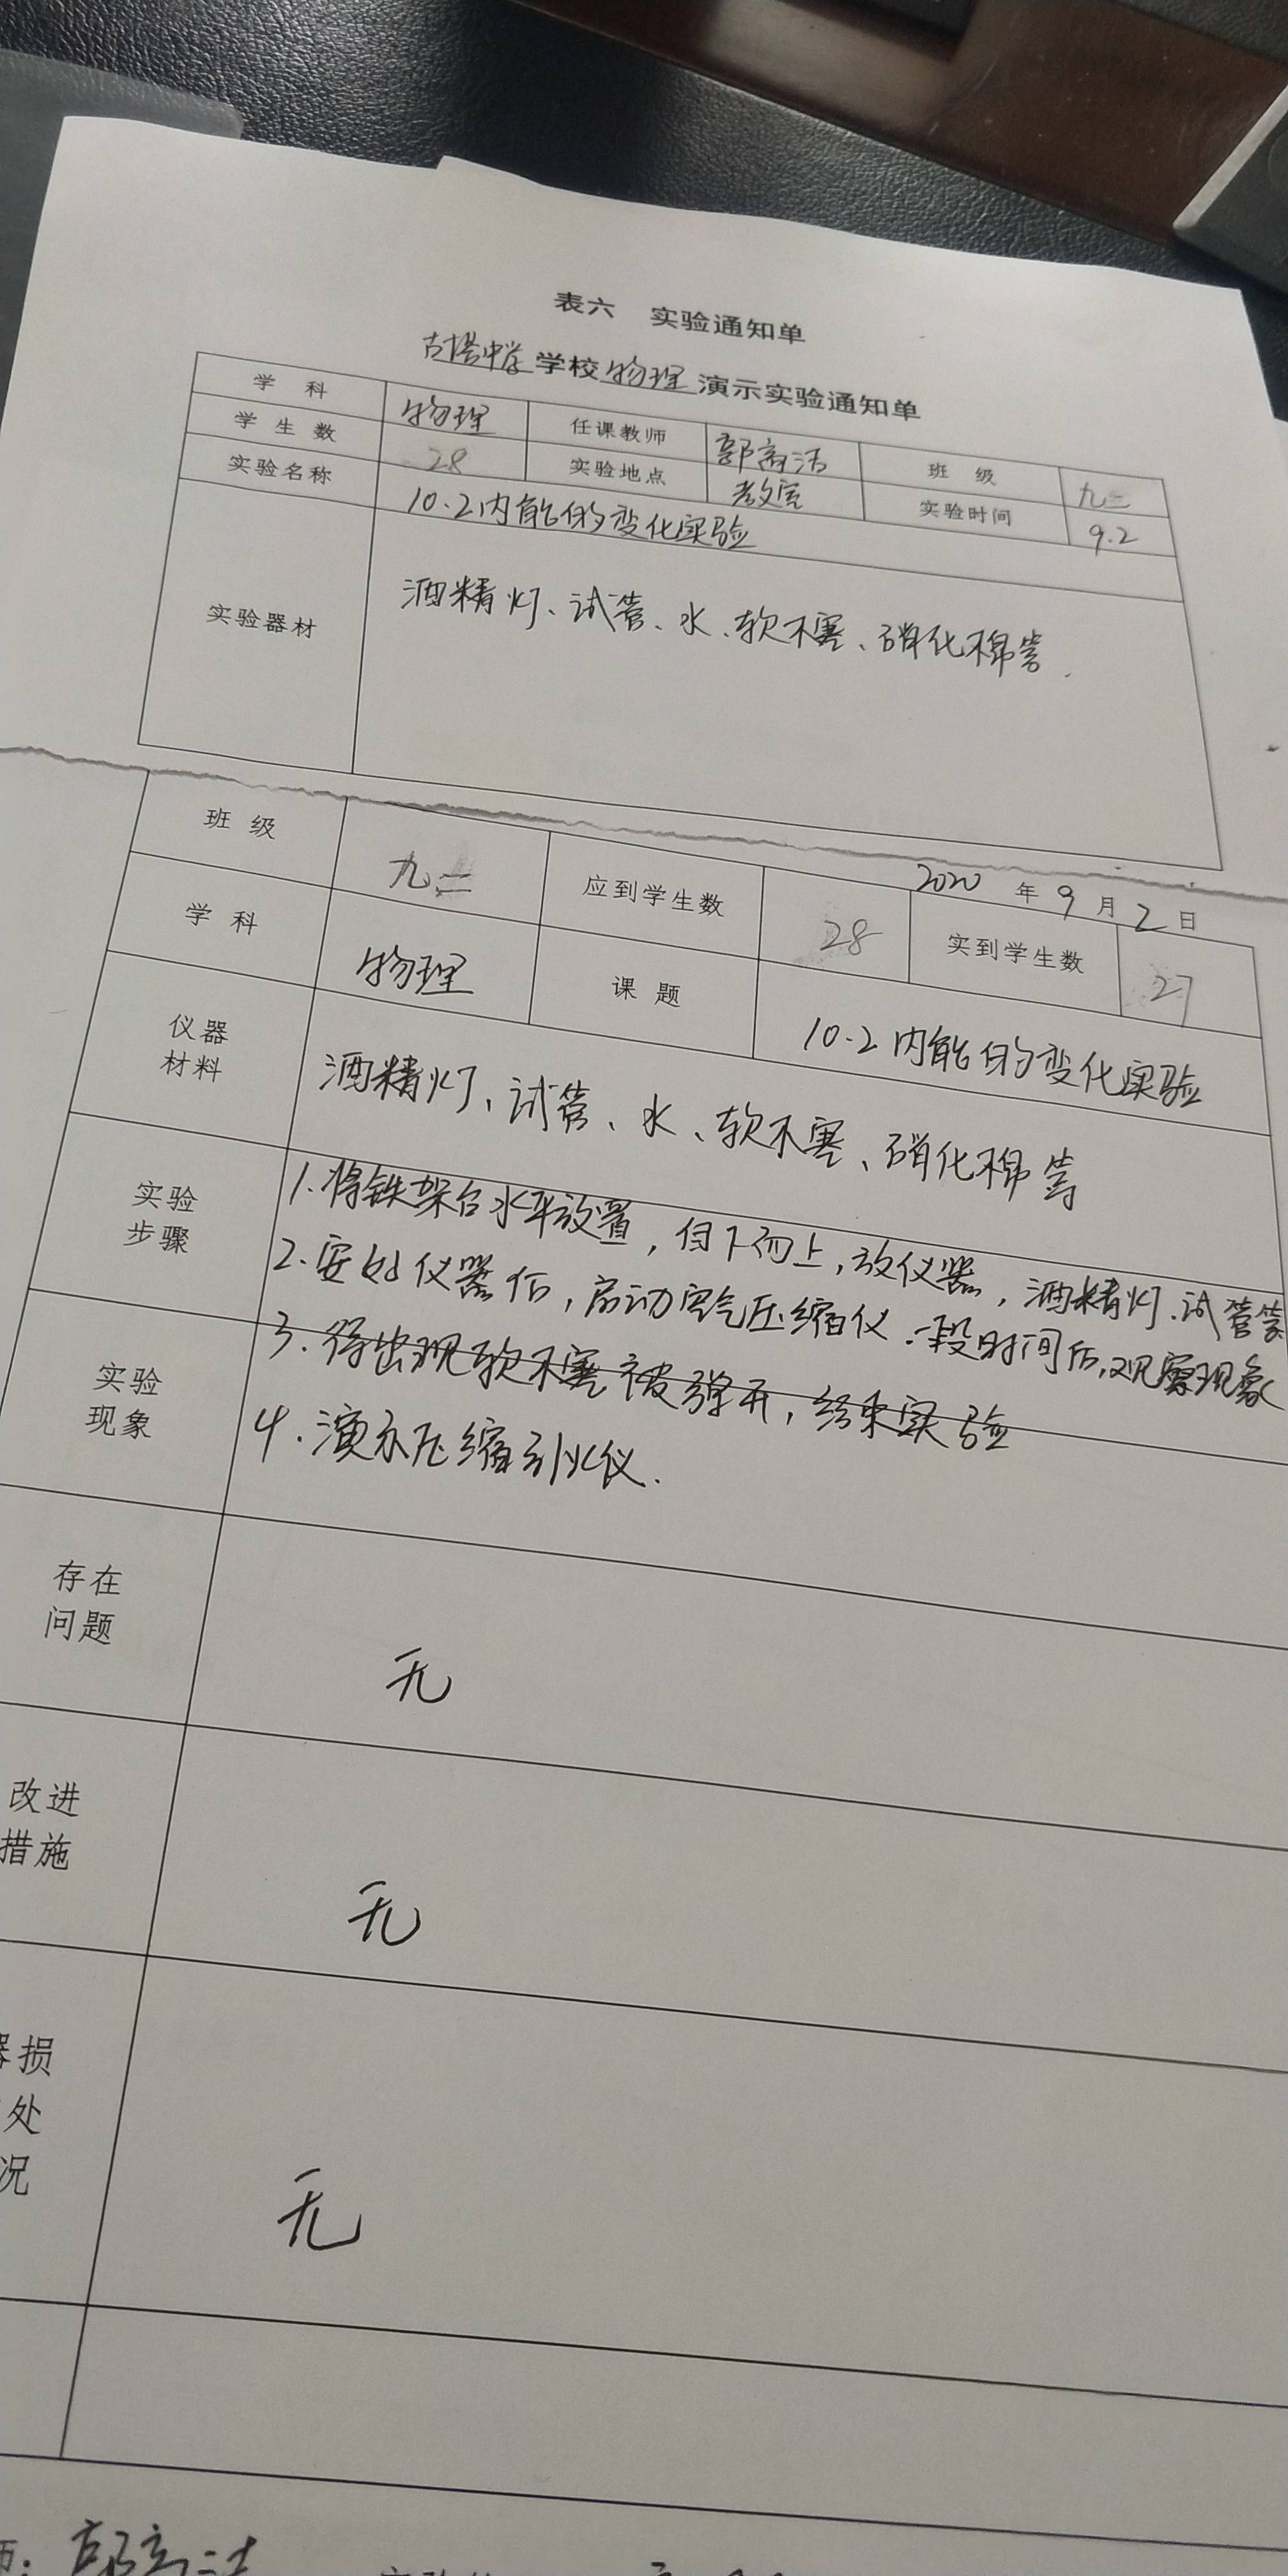 表六 实验通知单
古塔中学学校物理演示实验通知单
学科 物理 任课教师 郭高洁 班级 九二
学生数 28 实验地点 教室 实验时间 9.2
实验名称 10.2内能的变化实验
实验器材 酒精灯、试管、水、软木塞、硝化棉等.
2020年9月2日
班级 九二 应到学生数 28 实到学生数 27
学科 物理 课题 10.2内能的变化实验
仪器材料 酒精灯、试管、水、软木塞、硝化棉等
实验步骤
1.将铁架台水平放置,自下而上,放仪器,酒精灯.试管等
2.安好仪器后,启动空气压缩仪.一段时间后,观察现象
实验现象
3.待出现软木塞被弹开,结束实验
4.演示压缩引火仪.
存在问题 无
改进措施 无
器损
处
况
无
师: